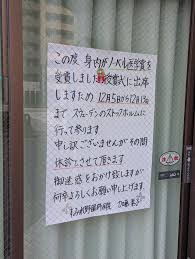 この度 身内がノーベル医学賞を
受賞しました 授賞式に出席
しますため 12月5日から12月13日
まで スウェーデンのストックホルムに
行って参ります
申し訳ございませんが その間
休診とさせて頂きます
御迷惑をおかけ致しますが
何卒よろしくお願い申し上げます